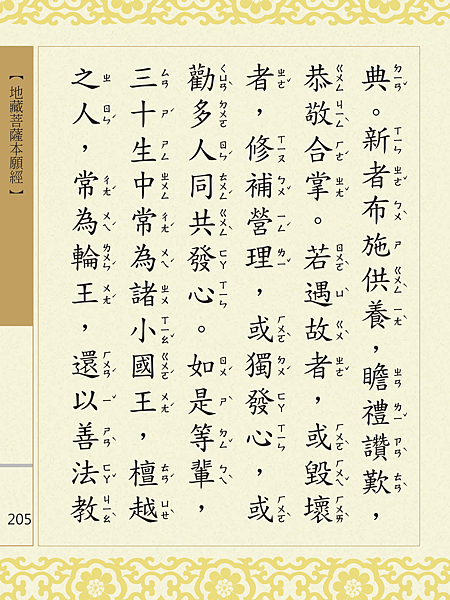 典。新者布施供養，瞻禮讚歎，
恭敬合掌。若遇故者，或毀壞
者，修補營理，或獨發心，或
勸多人同共發心。如是等輩，
三十生中常為諸小國王，檀越
之人，常為輪王，還以善法教
【地藏菩薩本願經】
205